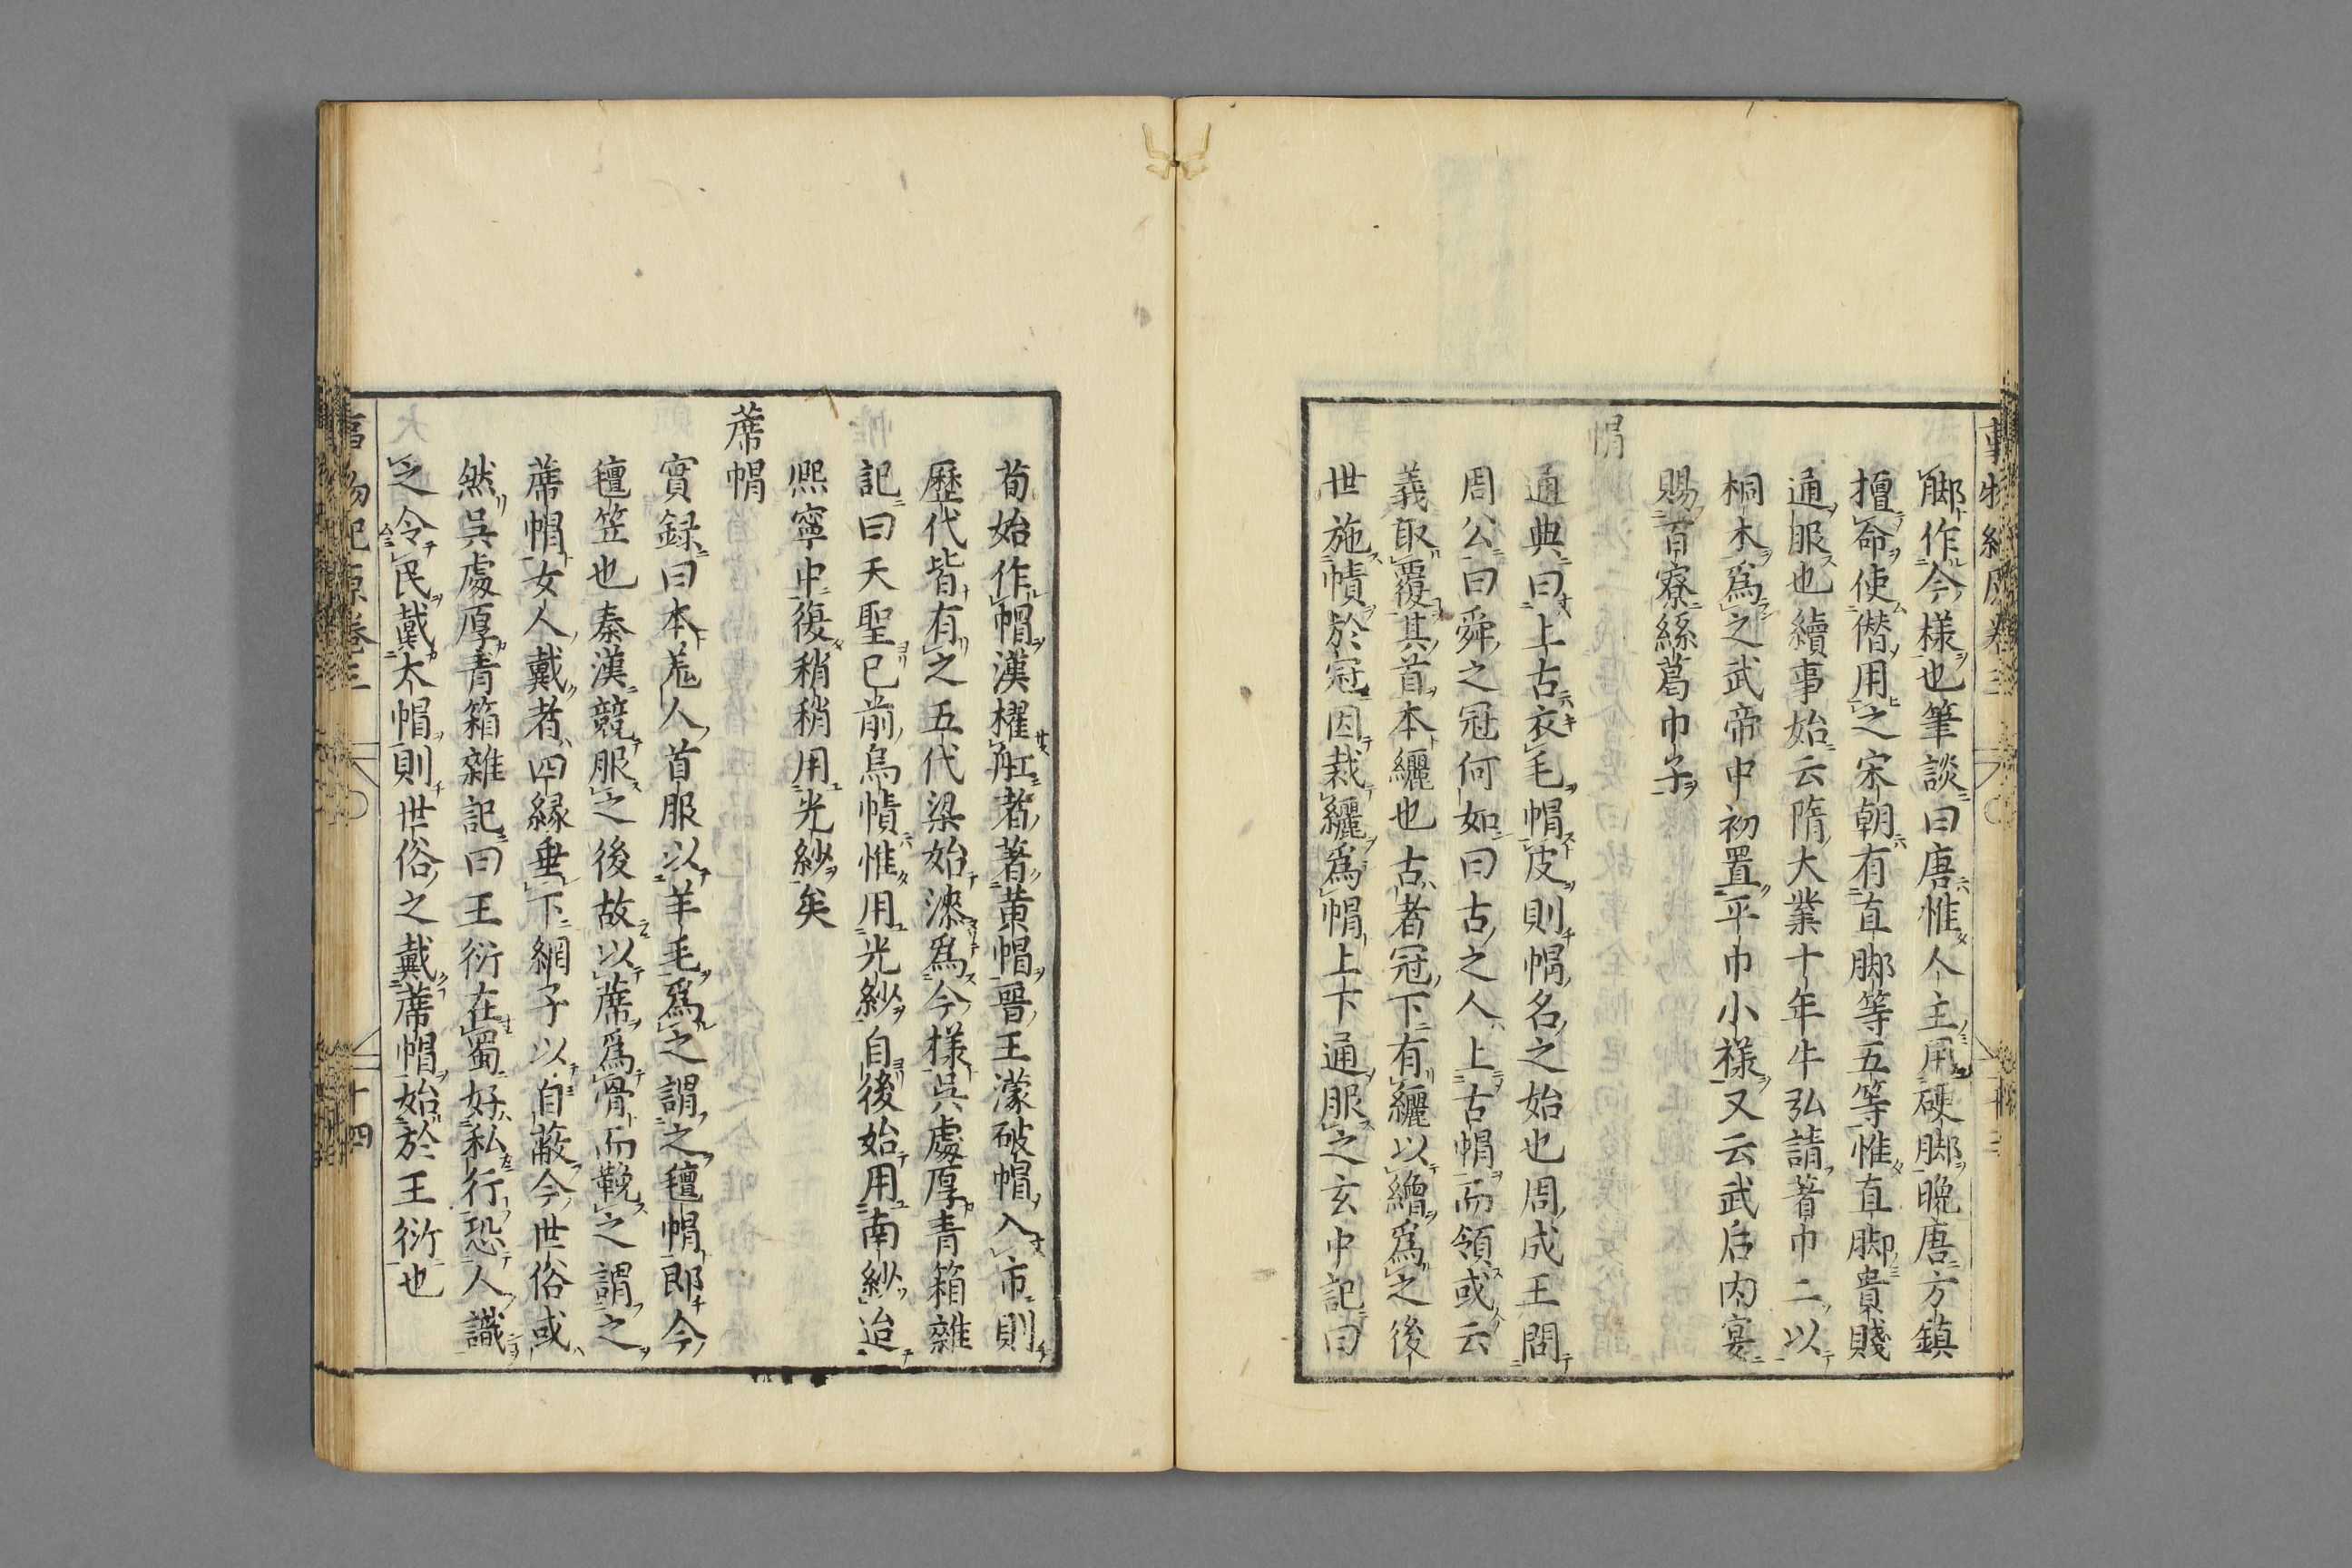 脚作今様也筆談曰唐惟人主用硬脚晩唐方鎮
擅命使僭用之宋朝有直脚等五等惟直脚貴賤
通服也續事始云隋大業十年牛弘請著巾二以
桐木爲之武帝中初置平巾小様又云武后内宴
賜百寮絲葛巾子
帽
通典曰上古衣毛帽皮則帽名之始也周成王問
周公曰舜之冠何如曰古之人上古帽而領或云
義取覆其首本纚也古者冠下有纚以繒爲之後
世施幘於冠因裁纚爲帽上下通服之玄中記曰
荀始作帽漢櫂舡者著黄帽晉王濛破帽入市則
歴代皆有之五代梁始漆爲今様呉處厚青箱雜
記曰天聖已前烏幘惟用光紗自後始用南紗迨
熈寧中復稍稍用光紗矣
蓆帽
實録曰本羌人首服以羊毛爲之謂之氊帽即今
氊笠也秦漢競服之後故以蓆爲骨而鞔之謂之
蓆帽女人戴者四縁垂下網子以自蔽今世俗或
然呉處厚青箱雜記曰王衍在蜀好私行恐人識
之令民戴大帽則世俗之戴蓆帽始於王衍也
事物紀原巻三
十四